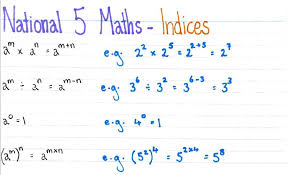 National 5 Maths - Indices
aᵐ × aⁿ = aᵐ⁺ⁿ e.g. 2² × 2⁵ = 2²⁺⁵ = 2⁷
aᵐ ÷ aⁿ = aᵐ⁻ⁿ e.g. 3⁶ ÷ 3³ = 3⁶⁻³ = 3³
a⁰ = 1 e.g. 4⁰ = 1
(aᵐ)ⁿ = aᵐˣⁿ e.g. (5²)⁴ = 5²ˣ⁴ = 5⁸